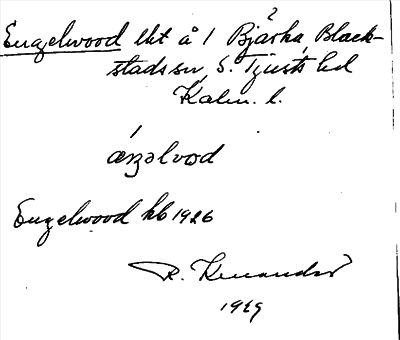 Engelwood lht å 1 Bjärka, Black-
stads sn, S. Tjusts hd
Kalm. l.
ænəlvod
Engelwood kb 1926
R. Kenander
1929